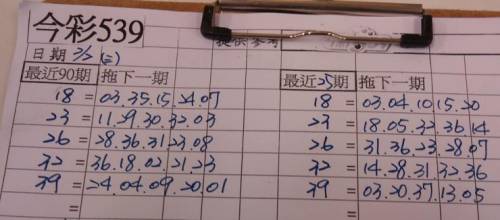 今彩539
提供參考
日期 2/2 (二)
最近90期 拖下一期 最近25期 拖下一期
18 = 03.35.15.24.07 18 = 03.04.10.15.20
23 = 11.29.30.32.03 23 = 18.05.32.36.14
26 = 28.36.31.23.08 26 = 31.36.23.28.07
32 = 36.18.02.21.23 32 = 14.28.31.32.36
39 = 24.04.09.20.01 39 = 03.20.37.13.05
= =